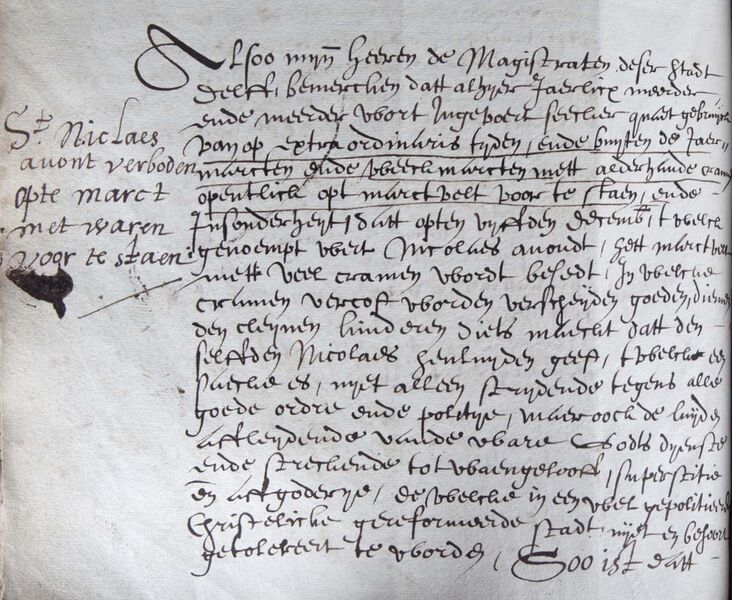 St. Niclaes
avont verboden
opte marct
met waren
voor te staen
Alsoo mijn heeren de Magistraten deser stadt
Delff, bemercken datt alhyer Jaerlicx meerder
ende meerder wort Ingevoert seecker quaet gebruijck
van op extraordinaris tijden, ende buijten de Jaer-
marcten ende weeckmarcten mett alderhande cramen
opentlick opt marctvelt voor te staen, ende
Insonderheyt, datt opten vijffden decemb, twelck
genoempt wert Nicolaes avondt, hett marctvelt
mett veel cramen wordt besedt, In welcke
cramen vercoft worden verscheyden goeden, diemen
den cleijnen kinderen diets maeckt datt den
selffden Nicolaes henluijden geeft, twelck een
saecke es, nijet alleen strijdende tegens alle
goede ordre ende politije, maer oock de luijden
afleijdende vande ware Godts dyenste
ende streckende tot waengelooff, superstitie
en affgoderije, de welcke in een wel gepolitieerde
Christelicke gereformeerde stadt nijet en behoort
getolereert te worden, Soo ist datt